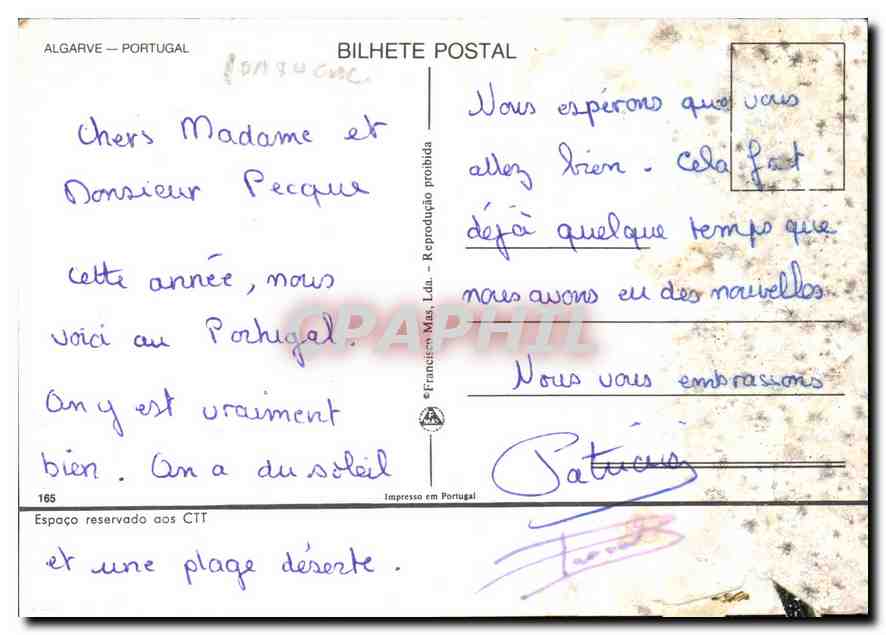 ALGARVE — PORTUGAL
BILHETE POSTAL
Chers Madame et
Monsieur Pecque
Cette année, nous
voici au Portugal.
On y est vraiment
bien. On a du soleil
165
Espaço reservado aos CTT
et une plage déserte.
© Francisco Mas, Lda. – Reprodução proibida
Impresso em Portugal
CPAPHIL
Nous espérons que vous
allez bien. Cela fait
déjà quelque temps que
nous avons eu des nouvelles
Nous vous embrassons
Patricia